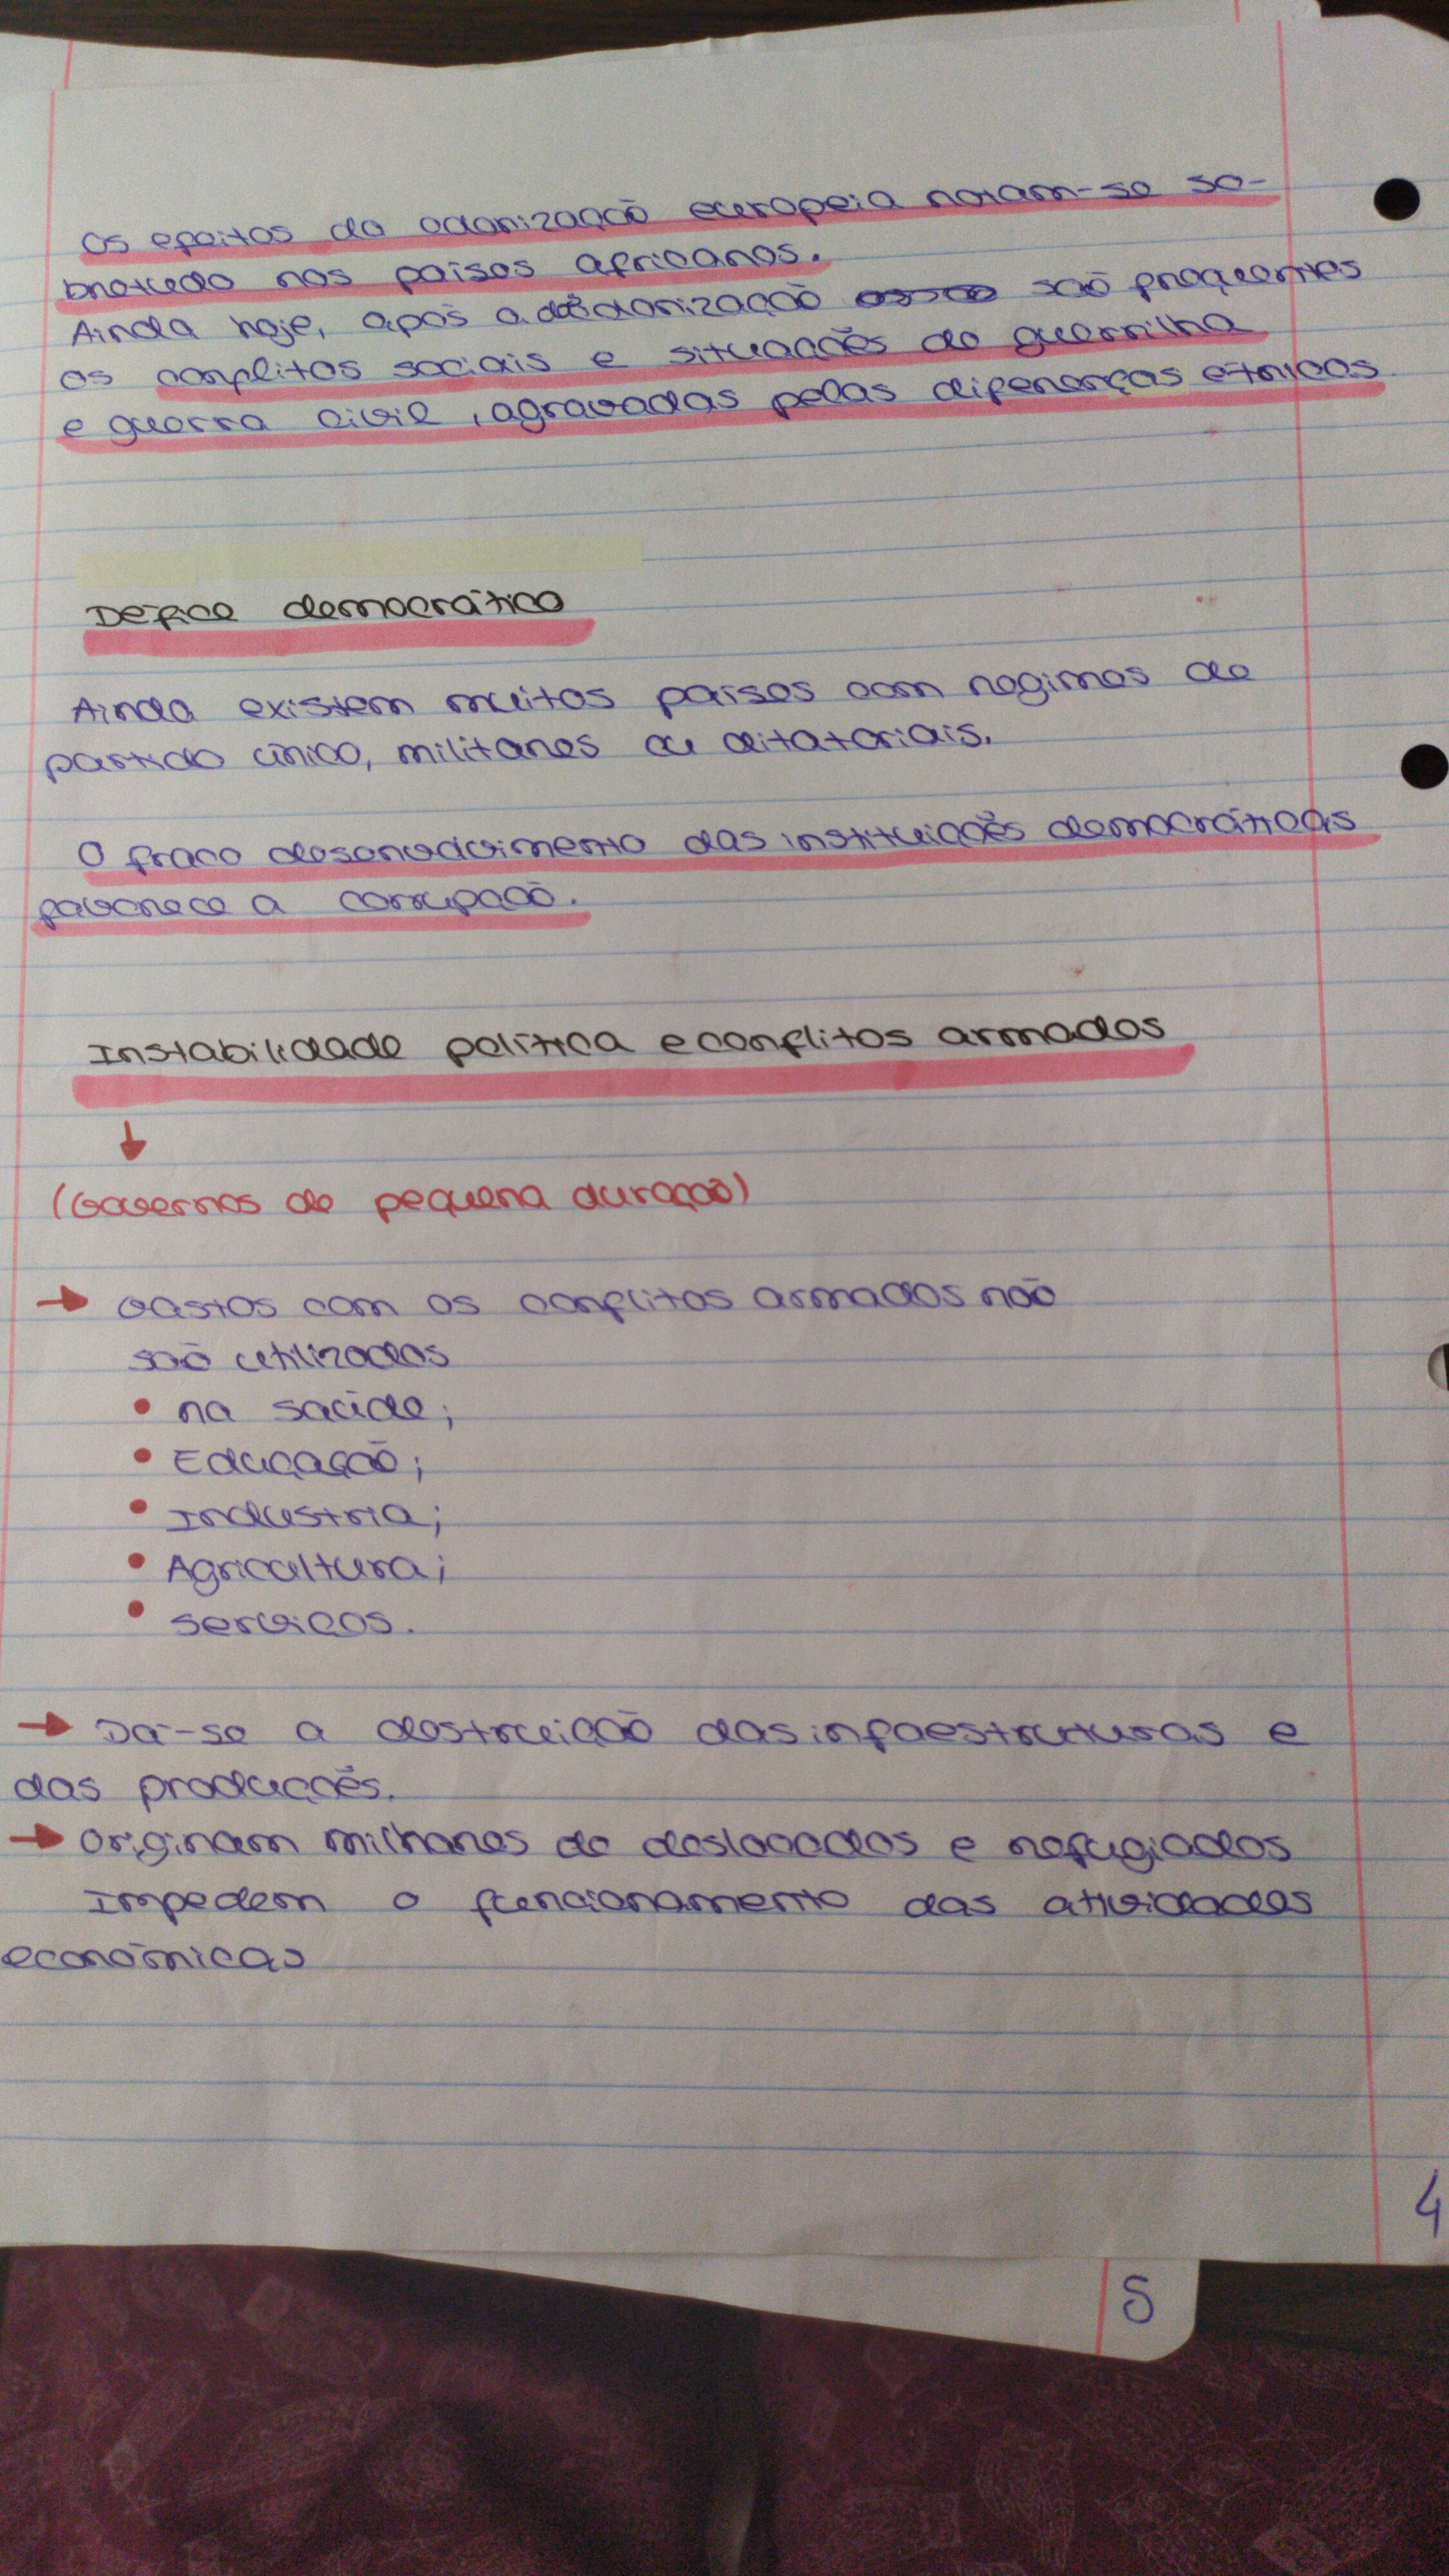 Os efeitos da colonização europeia notam-se so-
bretudo nos países africanos.
Ainda hoje, após a descolonização são frequentes
os conflitos sociais e situações de guerrilha
e guerra civil, agravadas pelas diferenças étnicas
Défice democrático
Ainda existem muitos países com regimes de
partido único, militares ou ditatoriais.
O fraco desenvolvimento das instituições democráticas
favorece a corrupção.
Instabilidade política e conflitos armados
↓
(Governos de pequena duração)
→ Gastos com os conflitos armados não
são utilizados
• na saúde;
• Educação;
• Industria;
• Agricultura;
• serviços.
→ Dá-se a destruição das infaestruturas e
das produções.
→ Originam milhares de deslocados e refugiados
Impedem o funcionamento das atividades
económicas
4
5